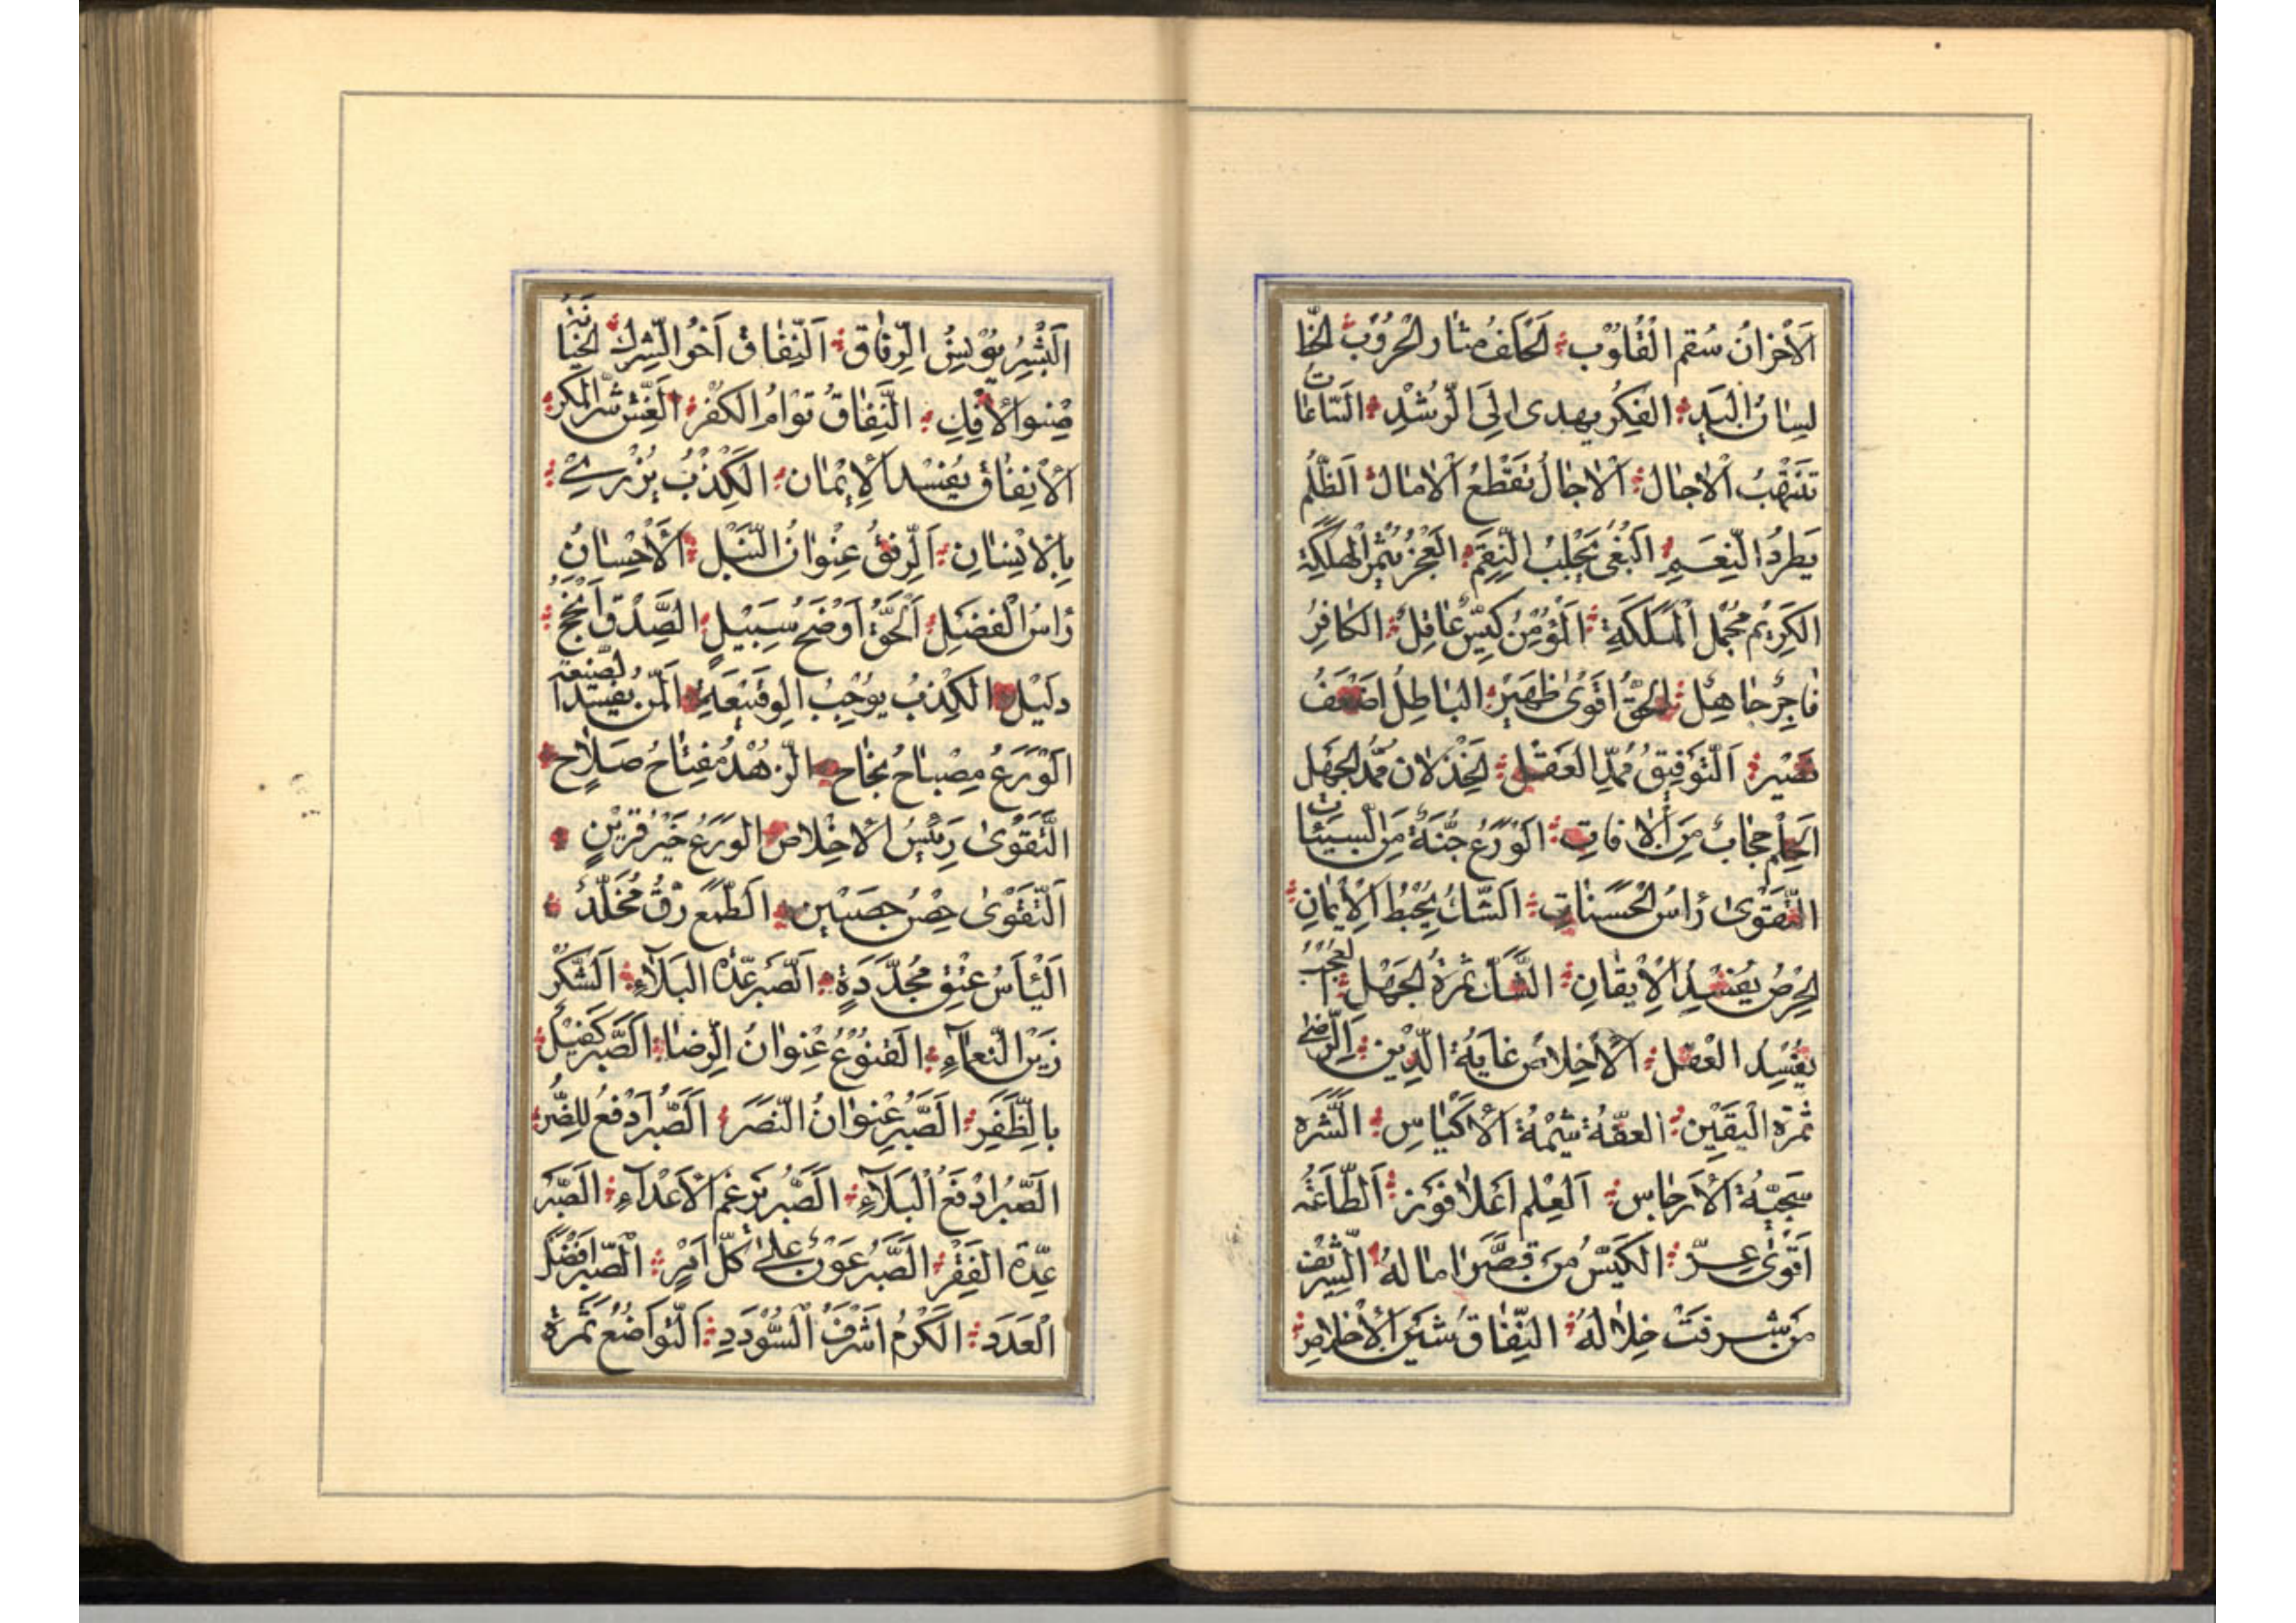 اَلْاَحْزانُ سُقمُ الْقُلُوْب اَلْخُلفُ مثار الْحُرُوْب الخَطّ
لِسانُ الْيَدِ الفِكْرُ يهدى اِلَى الرُّشْدِ السّاعات
تَنْتَهِبُ الْاٰجٰالَ الْاٰجٰالُ تَقْطَعُ الْاٰمٰالَ الظُّلْمُ
يَطرُدُ النِّعَمِ اَلْبَغْىُ يَجْلِبُ النِّقَمْ العَجْزُ يُثْمِرُ الهَلَكَة
الكَرِيْمُ مُجْمِلُ الْمَلَكَةِ اَلْمُؤْمِنُ كَيِّسٌ عٰاقِلٌ الكٰافِرُ
فٰاجِرٌ جٰاهِلٌ اَلْحَقُّ اَقْوىٰ ظَهِيْرٍ البٰاطِلُ اَضْعَفُ
نَصِيْرٍ اَلتَّوْفِيْقُ مُمِدُّ العَقْلِ اَلْخِذْلان مُمِدُّ الجَهْل
اَلْحِلْمُ حِجابٌ مِنَ الْاٰفاتِ اَلْوَرَعُ جُنَّةٌ مِنَ السَّيِّئات
التَّقْوىٰ رَاْسُ الْحَسَناتِ اَلشَّكُّ يُحْبِطُ الْاِيْمٰانِ
الحِرْصُ يُفْسِدُ الْاِيْقانِ الشَّكُّ ثَمَرَةُ الْجَهْلِ العُجْبُ
يُفْسِدُ العْقل الْاِخْلاصُ غايَةُ الدِّيْنِ اَلرِّضىٰ
ثَمَرَة الْيَقيْن العِفَّةُ شِيْمَةُ الْاَكْيٰاسِ الشَّرَه
سَجِيَّةُ الْاَرْجٰاسِ اَلعِلْمُ اَعْلا فَوْزٍ اَلطّاعَةُ
اَقوىٰ عِزٍّ الكَيِّسُ مَنْ قَصَّرَ اٰمالَهُ الشَّرِيْفُ
مَنْ شَرِفَتْ خِلالُهُ النِّفٰاقُ شَيْنُ الْاَخْلاقِ
اَلْبِشْرُ يُوْنِسُ الرِّفاقَ اَلنِّفاقُ اَخُو الشِّرْكِ الخِيانَةُ
صِنْو الْاِفْكِ النِّفٰاقُ تَوْامُ الكُفْرِ اَلغِشُّ شَرُّ المَكْرِ
الْاِنِفاق يُفْسِدُ الْاِيْمٰانَ اَلْكِذْبُ يُزْرِىْ
بِالْاِنْسٰانِ اَلرِّفْقُ عِنْوانُ النُّبْلِ اَلْاِحْسانُ
رَاسُ الْفَضْلِ اَلْحَقُّ اَوْضَحُ سَبِيْلٍ الصِّدْقُ اَنْجَحُ
دَليْلٍ الكِذْبُ يُوْجِبُ الوَقيْعَةِ اَلْمَنُّ يُفْسِدُ الصَّنِيعَة
اَلْوَرَعُ مِصْباحُ نَجاح اَلزُّهْدُ مُفِتاحُ صَلاٰحٍ
التَّقْوىٰ رَئِيْسُ الْاِخْلاص الوَرَعُ خَيْرُ قَرِيْنٍ
اَلتَّقْوىٰ حِصْنٌ حَصِيْنٌ اَلطَّمَعُ رِقٌّ مُخَلَّدٌ
اَلْيَأسُ عِتْقٌ مُجَدَّدَةٍ اَلصَّبْرُ عُدَّةُ البَلاٰءِ اَلشُّكْرُ
زَيْنُ النَّعمٰاءِ القُنوُعُ عُنْوانُ الرِّضا اَلصَّبْرُ كَفيْلٌ
بِالظَّفَرِ اَلصَّبْرُ عُنْوانُ النَّصْرِ اَلصَّبْرُ اَدْفَعُ لِلضُّرِّ
الصَّبْرُ ادْفَعُ الْبَلاٰءِ اَلصَّبْرُ يُرْغِمُ الْاَعْدٰاءِ اَلصَّبْرُ
عِدَّةُ الفَقْر الصَّبْرُ عَوْنٌ عَلىٰ كُلِّ اَمْرٍ الْصَّبْرُ اَفْضَلُ
الْعَدَدِ الكَرَمُ اَشْرَفُ السُّؤْدَدِ التَّواضُعُ ثَمَرَةُ